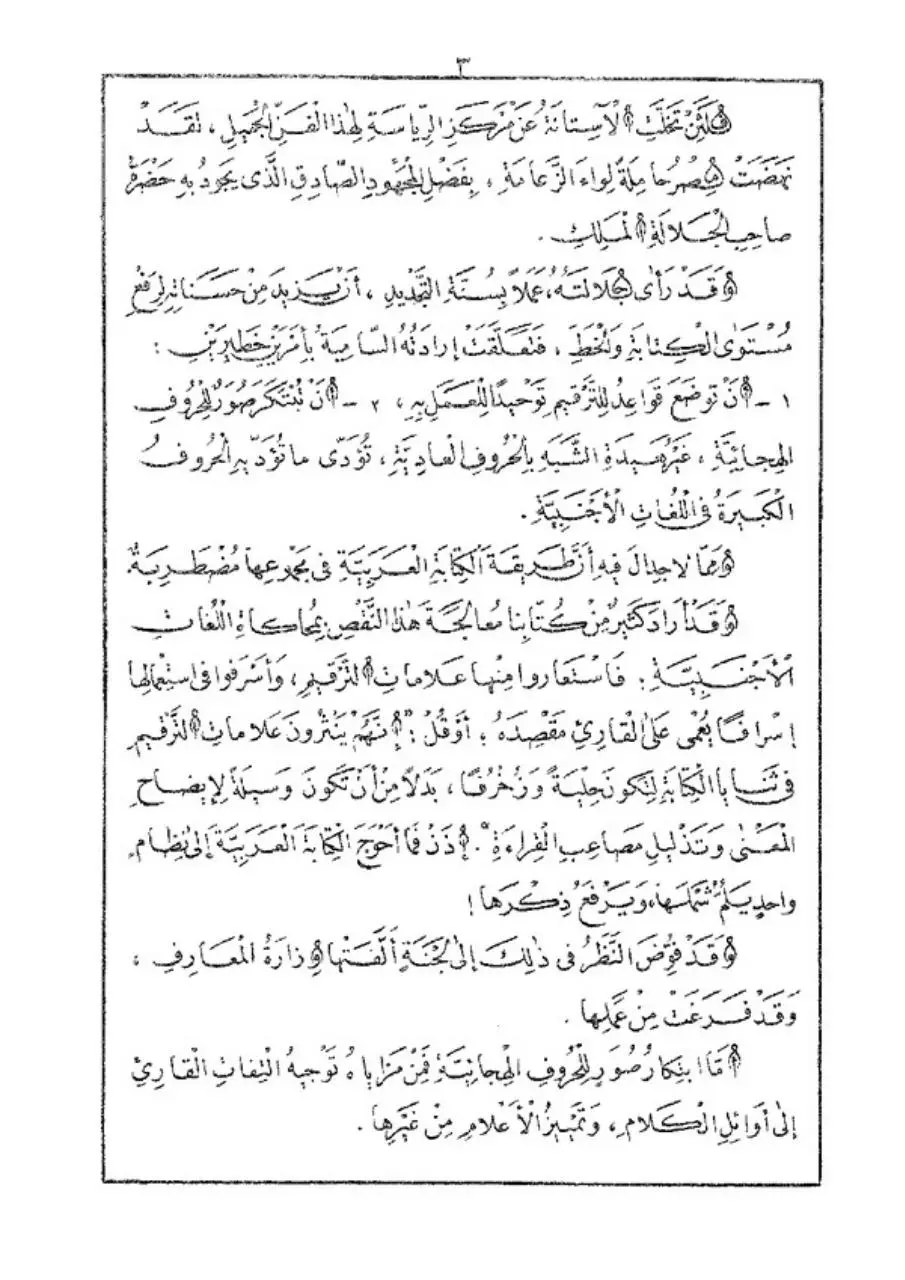 ٣
فَلَئِنْ تَخَلَّتِ الْآسِتانَةُ عَنْ مَرْكَزِ الرِّياسَةِ لِهٰذا الْفَنِّ الْجَمِيلِ ، لَقَدْ
نَهَضَتْ مِصْرُ حامِلَةً لِواءَ الزَّعامَةِ ، بِفَضْلِ الْمَجْهُودِ الصّادِقِ الَّذى يَجُودُ بِهِ حَضْرَةُ
صاحِبِ الْجَلالَةِ الْمَلِكِ .
وَقَدْ رَأى جَلالَتُهُ، عَمَلاً بِسُنَّةِ التَّجْدِيدِ ، أَنْ يَزِيدَ مِنْ حَسَناتِهِ لِرَفْعِ
مُسْتَوَى الْكِتابَةِ وَالْخَطِّ ، فَتَعَلَّقَتْ إِرادَتُهُ السّامِيَةُ بِأَمْرَيْنِ خَطِيرَيْنِ :
١ - أَنْ تُوضَعَ قَواعِدُ لِلتَّرْقِيمِ تَوْحِيدًا لِلْعَمَلِ بِهِ ، ٢ - أَنْ تُبْتَكَرَ صُوَرٌ لِلْحُرُوفِ
الْهِجائِيَّةِ ، غَيْرُ بَعِيدَةِ الشَّبَهِ بِالْحُرُوفِ الْعادِيَّةِ ، تُؤَدّى ما تُؤَدِّيهِ الْحُرُوفُ
الْكَبِيرَةُ فى اللُّغاتِ الْأَجْنَبِيَّةِ .
وَمِمّا لا جِدالَ فِيهِ أَنَّ طَرِيقَةَ الْكِتابَةِ الْعَرَبِيَّةِ فى مَجْمُوعِها مُضْطَرِبَةٌ.
وَقَدْ أَرادَ كَثِيرٌ مِنْ كُتّابِنا مُعالَجَةَ هٰذا النَّقْصِ بِمُحاكاةِ اللُّغاتِ
الْأَجْنَبِيَّةِ : فَاسْتَعارُوا مِنْها عَلاماتِ التَّرْقِيمِ، وَأَسْرَفُوا فى اسْتِعْمالِها
إِسْرافًا يُعْمِى عَلَى الْقارِئِ مَقْصِدَهُ ؛ أَوْ قُلْ : "إِنَّهُمْ يَنْثُرُونَ عَلاماتِ التَّرْقِيمِ
فى ثَنايا الْكِتابَةِ لِتَكُونَ حِلْيَةً وَزُخْرُفًا ، بَدَلاً مِنْ أَنْ تَكُونَ وَسِيلَةً لِإِيضاحِ
الْمَعْنٰى وَتَذْلِيلِ مَصاعِبِ الْقِراءَةِ". إِذَنْ فَما أَحْوَجَ الْكِتابَةَ الْعَرَبِيَّةَ إِلى نِظامٍ
واحِدٍ يَلُمُّ شَمْلَها، وَيَرْفَعُ ذِكْرَها !
وَقَدْ فُوِّضَ النَّظَرُ فى ذٰلِكَ إِلىٰ لَجْنَةٍ أَلَّفَتْها وِزارَةُ الْمَعارِفِ ،
وَقَدْ فَرَغَتْ مِنْ عَمَلِها .
أَمّا ابْتِكارُ صُوَرٍ لِلْحُرُوفِ الْهِجائِيَّةِ فَمِنْ مَزاياهُ تَوْجِيهُ الْتِفاتِ الْقارِئِ
إِلىٰ أَوائِلِ الْكَلامِ ، وَتَمْيِيزُ الْأَعْلامِ مِنْ غَيْرِها .